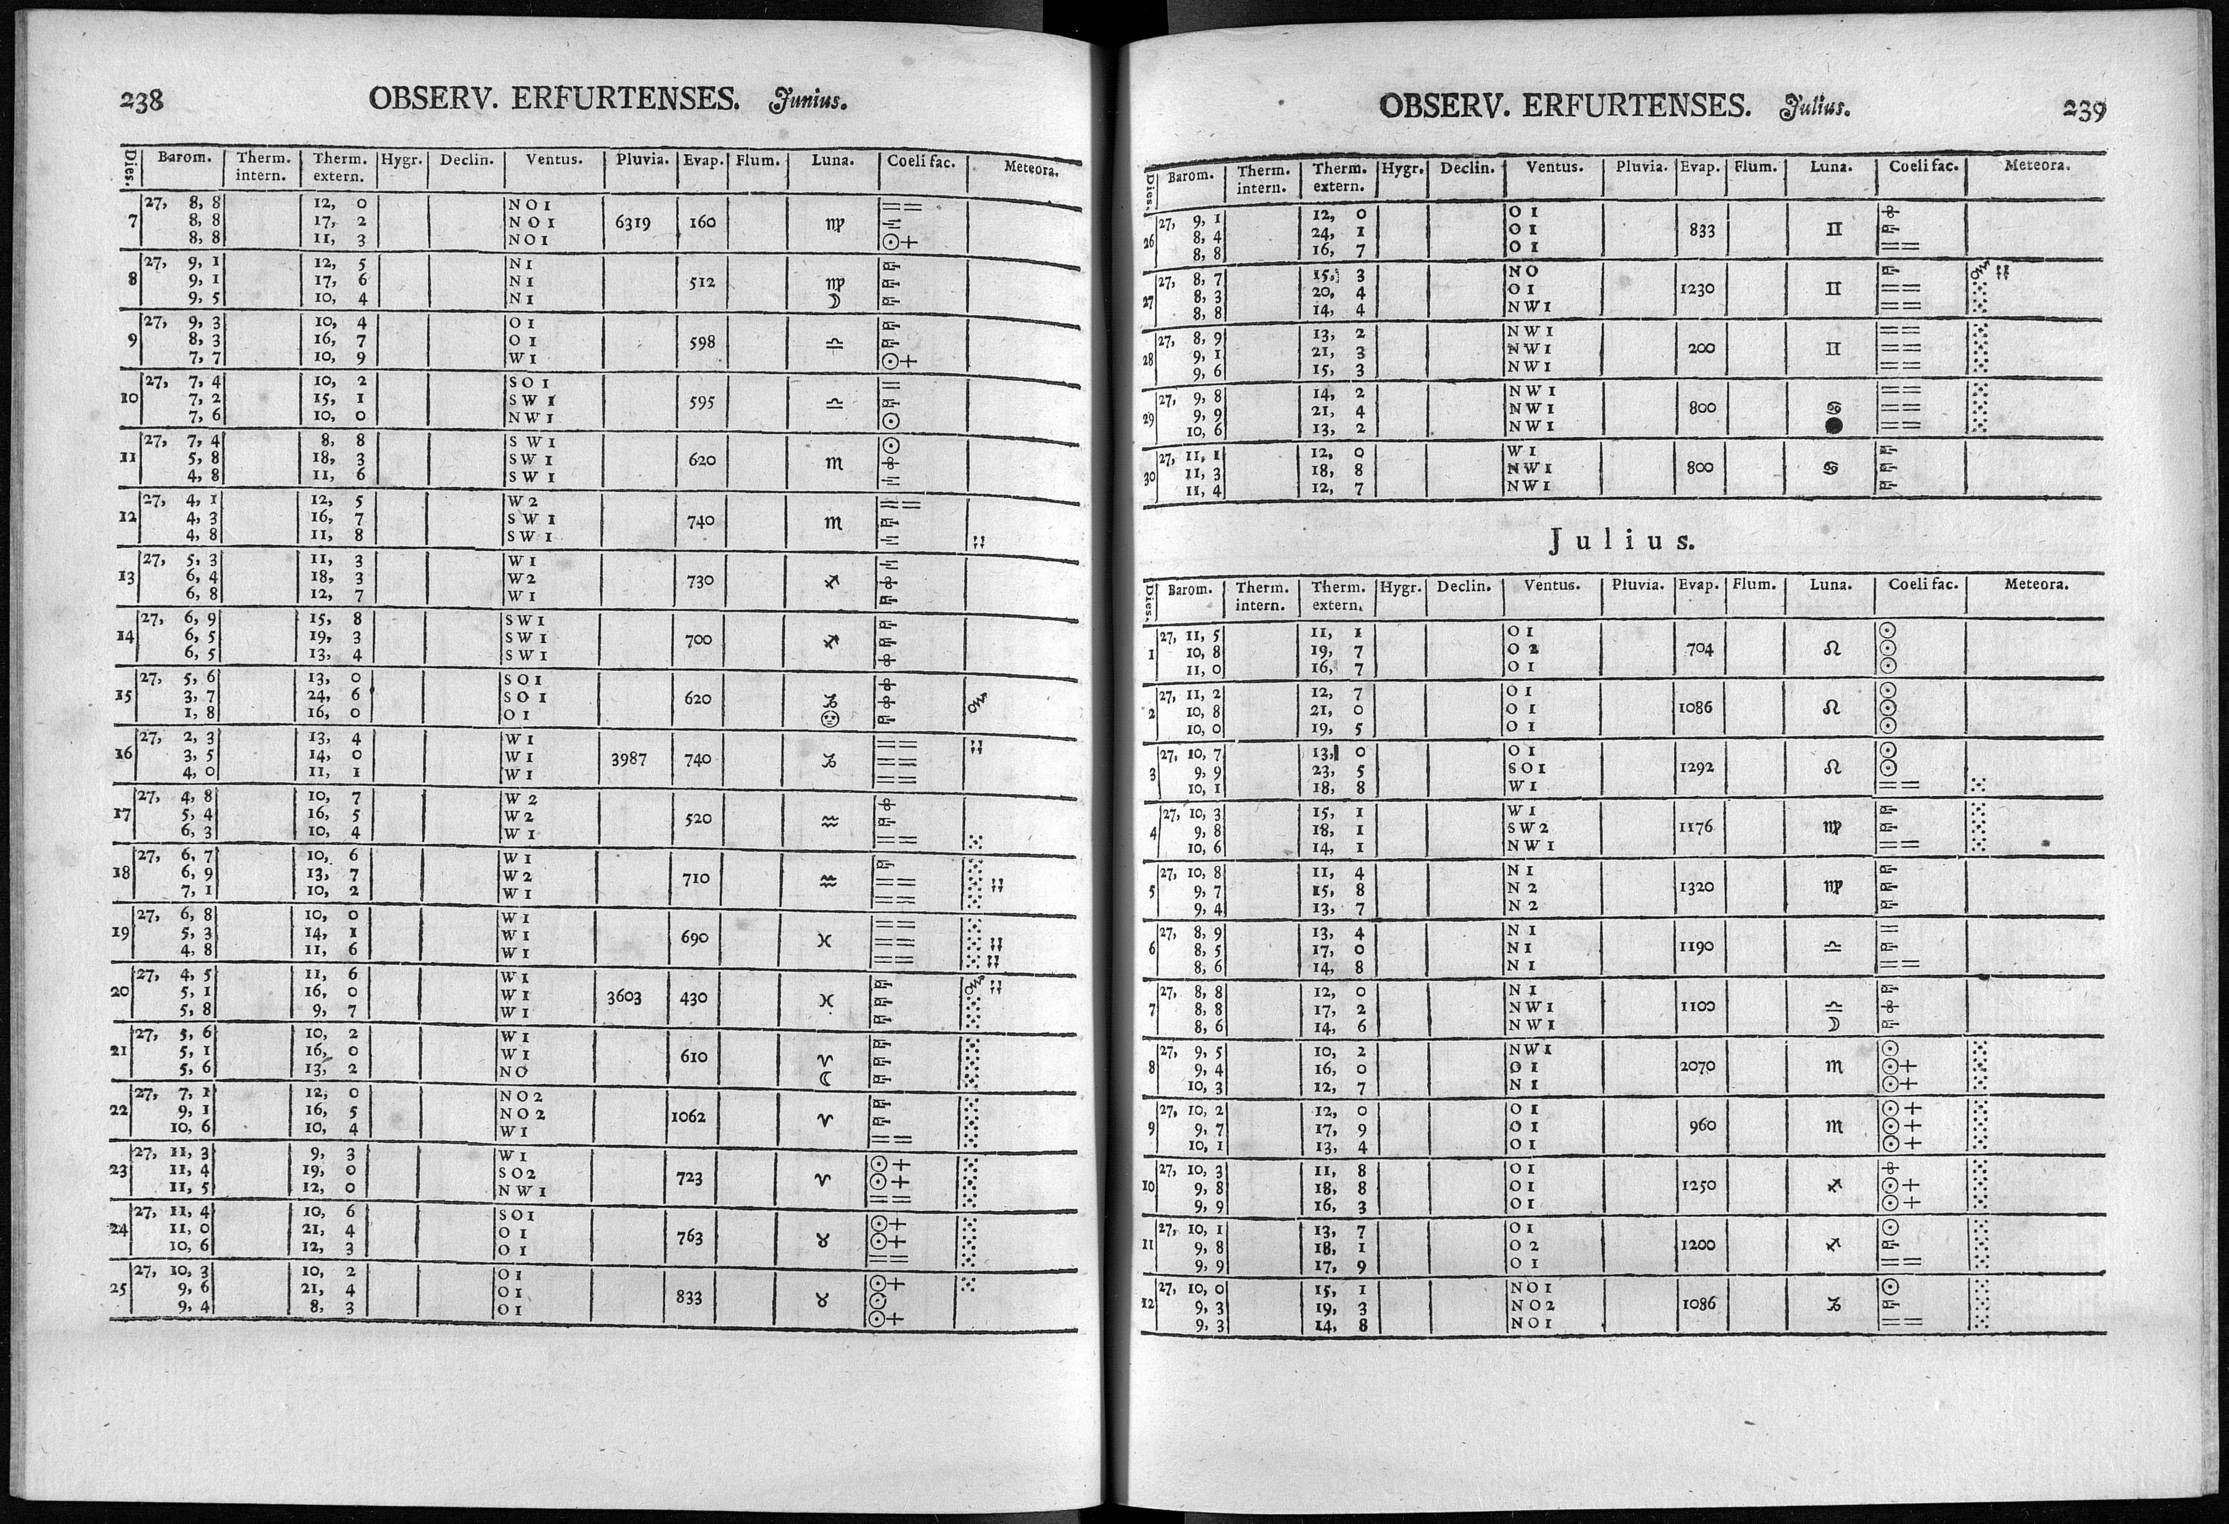 238 OBSERV. ERFURTENSES. Junius.
Dies. Barom. Therm. intern. Therm. extern. Hygr. Declin. Ventus. Pluvia. Evap. Flum. Luna. Coeli fac. Meteora.
27, 8, 8 12, 0 N O 1 ==
7 8, 8 17, 2 N O 1 6319 160 ♍
8, 8 11, 3 N O 1 ☉+
27, 9, 1 12, 5 N 1
8 9, 1 17, 6 N 1 512 ♍
9, 5 10, 4 N 1 ☽
27, 9, 3 10, 4 O 1
9 8, 3 16, 7 O 1 598 ♎
7, 7 10, 9 W 1 ☉+
27, 7, 4 10, 2 S O 1 =
10 7, 2 15, 1 S W 1 595 ♎
7, 6 10, 0 N W 1 ☉
27, 7, 4 8, 8 S W 1 ☉
11 5, 8 18, 3 S W 1 620 ♏
4, 8 11, 6 S W 1
27, 4, 1 12, 5 W 2 ==
12 4, 3 16, 7 S W 1 740 ♏
4, 8 11, 8 S W 1
27, 5, 3 11, 3 W 1
13 6, 4 18, 3 W 2 730 ♐
6, 8 12, 7 W 1
27, 6, 9 15, 8 S W 1
14 6, 5 19, 3 S W 1 700 ♐
6, 5 13, 4 S W 1
27, 5, 6 13, 0 S O 1
15 3, 7 24, 6 S O 1 620 ♑
1, 8 16, 0 O 1
27, 2, 3 13, 4 W 1 ==
16 3, 5 14, 0 W 1 3987 740 ♑ ==
4, 0 11, 1 W 1 ==
27, 4, 8 10, 7 W 2
17 5, 4 16, 5 W 2 520 ♒
6, 3 10, 4 W 1 ==
27, 6, 7 10, 6 W 1
18 6, 9 13, 7 W 2 710 ♒ ==
7, 1 10, 2 W 1 ==
27, 6, 8 10, 0 W 1 ==
19 5, 3 14, 1 W 1 690 ♓ ==
4, 8 11, 6 W 1 ==
27, 4, 5 11, 6 W 1
20 5, 1 16, 0 W 1 3603 430 ♓
5, 8 9, 7 W 1
27, 5, 6 10, 2 W 1
21 5, 1 16, 0 W 1 610 ♈
5, 6 13, 2 N O ☾
27, 7, 1 12, 0 N O 2
22 9, 1 16, 5 N O 2 1062 ♈
10, 6 10, 4 W 1 ==
27, 11, 3 9, 3 W 1 ☉+
23 11, 4 19, 0 S O 2 723 ♈ ☉+
11, 5 12, 0 N W 1 ==
27, 11, 4 10, 6 S O 1 ☉+
24 11, 0 21, 4 O 1 763 ♉ ☉+
10, 6 12, 3 O 1 ==
27, 10, 3 10, 2 O 1 ☉+
25 9, 6 21, 4 O 1 833 ♉ ☉
9, 4 8, 3 O 1 ☉+
OBSERV. ERFURTENSES. Julius. 239
Dies. Barom. Therm. intern. Therm. extern. Hygr. Declin. Ventus. Pluvia. Evap. Flum. Luna. Coeli fac. Meteora.
27, 9, 1 12, 0 O 1
26 8, 4 24, 1 O 1 833 ♊
8, 8 16, 7 O 1 ==
27, 8, 7 15, 3 N O
27 8, 3 20, 4 O 1 1230 ♊ ==
8, 8 14, 4 N W 1 ==
27, 8, 9 13, 2 N W 1 ==
28 9, 1 21, 3 N W 1 200 ♊ ==
9, 6 15, 3 N W 1 ==
27, 9, 8 14, 2 N W 1 ==
29 9, 9 21, 4 N W 1 800 ♋ ==
10, 6 13, 2 N W 1 ● ==
27, 11, 1 12, 0 W 1
30 11, 3 18, 8 N W 1 800 ♋
11, 4 12, 7 N W 1
Julius.
Dies. Barom. Therm. intern. Therm. extern. Hygr. Declin. Ventus. Pluvia. Evap. Flum. Luna. Coeli fac. Meteora.
27, 11, 5 11, 1 O 1 ☉
1 10, 8 19, 7 O 2 704 ♌ ☉
11, 0 16, 7 O 1 ☉
27, 11, 2 12, 7 O 1 ☉
2 10, 8 21, 0 O 1 1086 ♌ ☉
10, 0 19, 5 O 1 ☉
27, 10, 7 13, 0 O 1 ☉
3 9, 9 23, 5 S O 1 1292 ♌ ☉
10, 1 18, 8 W 1 ==
27, 10, 3 15, 1 W 1
4 9, 8 18, 1 S W 2 1176 ♍
10, 6 14, 1 N W 1 ==
27, 10, 8 11, 4 N 1
5 9, 7 15, 8 N 2 1320 ♍
9, 4 13, 7 N 2
27, 8, 9 13, 4 N 1 =
6 8, 5 17, 0 N 1 1190 ♎
8, 6 14, 8 N 1 ==
27, 8, 8 12, 0 N 1
7 8, 8 17, 2 N W 1 1100 ♎
8, 6 14, 6 N W 1 ☽
27, 9, 5 10, 2 N W 1 ☉
8 9, 4 16, 0 O 1 2070 ♏ ☉+
10, 3 12, 7 N 1 ☉+
27, 10, 2 12, 0 O 1 ☉+
9 9, 7 17, 9 O 1 960 ♏ ☉+
10, 1 13, 4 O 1 ☉+
27, 10, 3 11, 8 O 1
10 9, 8 18, 8 O 1 1250 ♐ ☉+
9, 9 16, 3 O 1 ☉+
27, 10, 1 13, 7 O 1 ☉
11 9, 8 18, 1 O 2 1200 ♐
9, 9 17, 9 O 1 ==
27, 10, 0 15, 1 N O 1 ☉
12 9, 3 19, 3 N O 2 1086 ♑
9, 3 14, 8 N O 1 ==